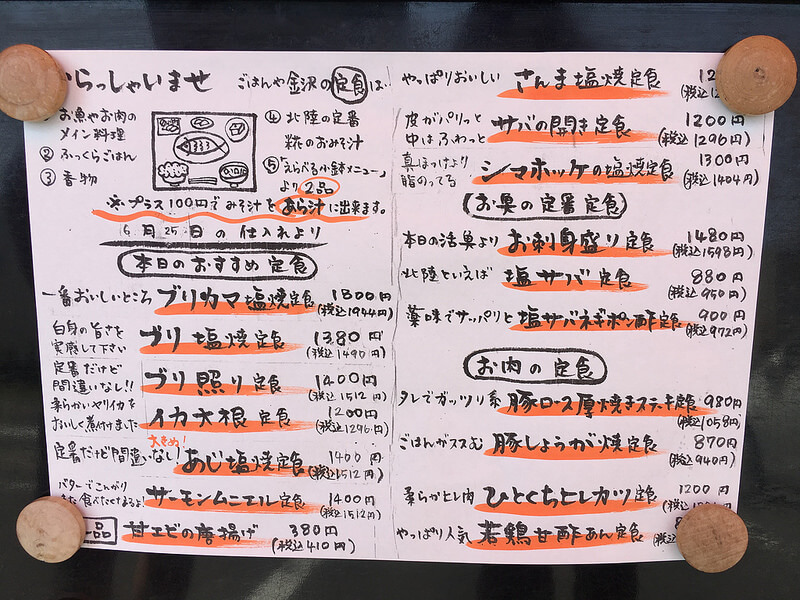 らっしゃいませ
ごはんや金沢の定食は…
お魚やお肉の
メイン料理
② ふっくらごはん
③ 香物
④ 北陸の定番
糀のおみそ汁
⑤「えらべる小鉢メニュー」
より 2品
※プラス100円でみそ汁をあら汁に出来ます。
6月25日の仕入れより
本日のおすすめ定食
一番おいしいところ ブリカマ塩焼定食 1800円
(税込1944円)
白身の旨さを
実感して下さい
ブリ塩焼定食 1380円
(税込1490円)
定番だけど
間違いなし!!
ブリ照り定食 1400円
(税込1512円)
柔らかいヤリイカを
おいしく煮付けました
イカ大根定食 1200円
(税込1296円)
大きめ!
定番だけど間違いなし! あじ塩焼定食 1400円
(税込1512円)
バターでこんがり
また食べたくなるよ!
サーモンムニエル定食 1400円
(税込1512円)
品 甘エビの唐揚げ 380円
(税込410円)
やっぱりおいしい さんま塩焼定食
皮がパリッと
中はふわっと
サバの開き定食 1200円
(税込1296円)
真ほっけより
脂のってる
シマホッケの塩焼定食 1300円
(税込1404円)
お魚の定番定食
本日の活魚より お刺身盛り定食 1480円
(税込1598円)
北陸といえば 塩サバ定食 880円
(税込950円)
薬味でサッパリと 塩サバネギポン酢定食 900円
(税込972円)
お肉の定食
タレでガッツリ系 豚ロース厚焼きステーキ定食 980円
(税込1058円)
ごはんがススむ 豚しょうが焼定食 870円
(税込940円)
柔らかヒレ肉 ひとくちヒレカツ定食 1200円
やっぱり人気 若鶏甘酢あん定食